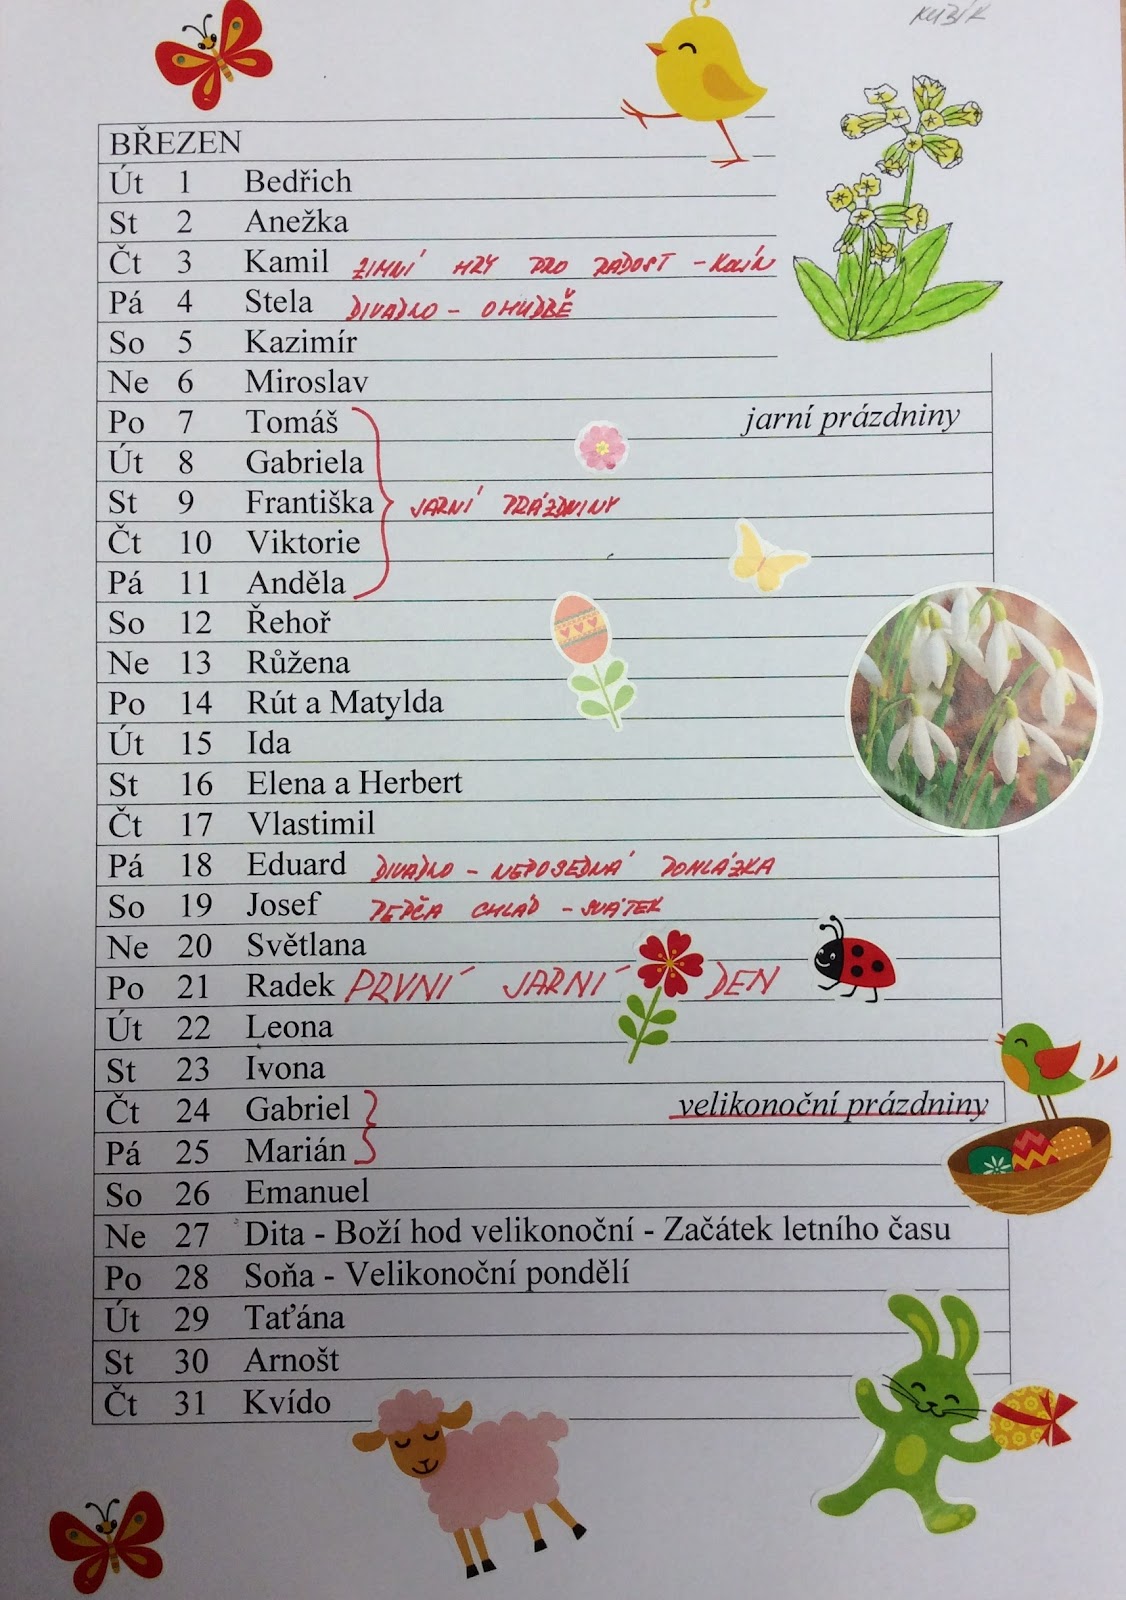 KUBÍK
BŘEZEN
Út 1 Bedřich
St 2 Anežka
Čt 3 Kamil ZIMNÍ HRY PRO RADOST - KOLÍN
Pá 4 Stela DIVADLO - O HUDBĚ
So 5 Kazimír
Ne 6 Miroslav
Po 7 Tomáš jarní prázdniny
Út 8 Gabriela
St 9 Františka JARNÍ PRÁZDNINY
Čt 10 Viktorie
Pá 11 Anděla
So 12 Řehoř
Ne 13 Růžena
Po 14 Rút a Matylda
Út 15 Ida
St 16 Elena a Herbert
Čt 17 Vlastimil
Pá 18 Eduard DIVADLO - NEPOSEDNÁ POMLÁZKA
So 19 Josef PEPČA CHLÁD - SVÁTEK
Ne 20 Světlana
Po 21 Radek PRVNÍ JARNÍ DEN
Út 22 Leona
St 23 Ivona
Čt 24 Gabriel velikonoční prázdniny
Pá 25 Marián
So 26 Emanuel
Ne 27 Dita - Boží hod velikonoční - Začátek letního času
Po 28 Soňa - Velikonoční pondělí
Út 29 Taťána
St 30 Arnošt
Čt 31 Kvído